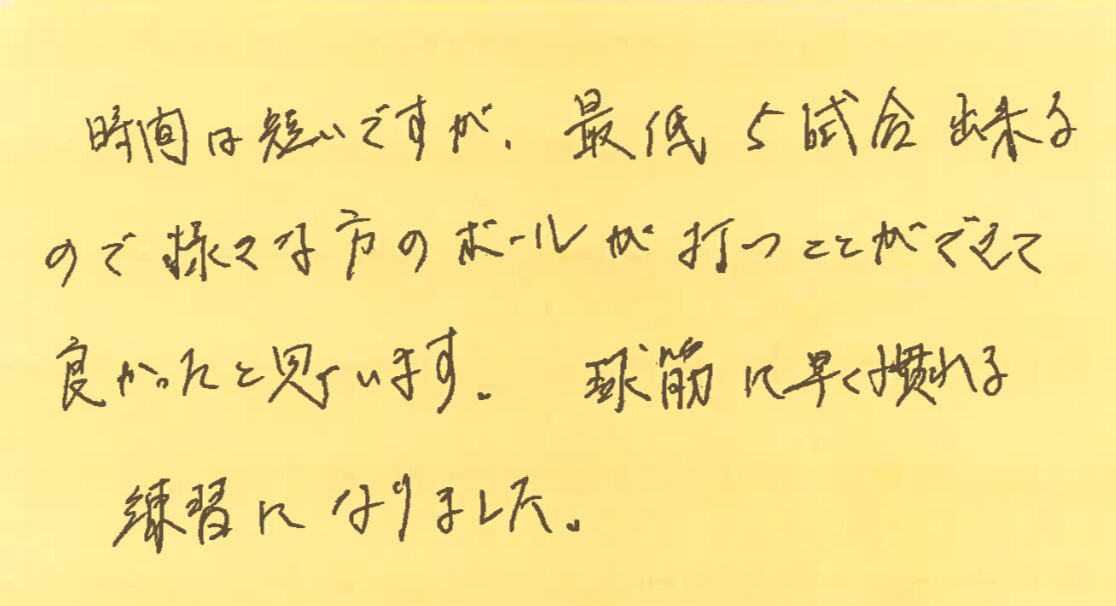 時間は短いですが、最低5試合出来る
ので様々な方のボールが打つことができて
良かったと思います。球筋に早く慣れる
練習になりました。